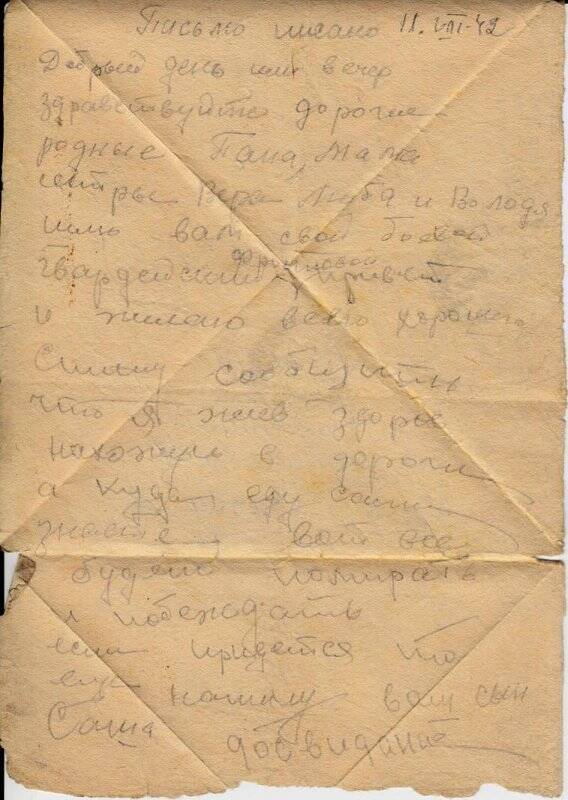 Письмо писано 11.VIII-42
Добрый день или вечер
здравствуйте дорогие
родные Папа, Мама
сестры Вера Люба и Володя
шлю вам свой боевой
фронтовой
Гвардейский привет
и желаю всего хорошего
Спешу сообщить
что я жив здоров
нахожусь в дороги
а куда еду сами
знаете вот где
будем помирать
и побеждать
если придется то
еще напишу ваш сын
Саша досвидания